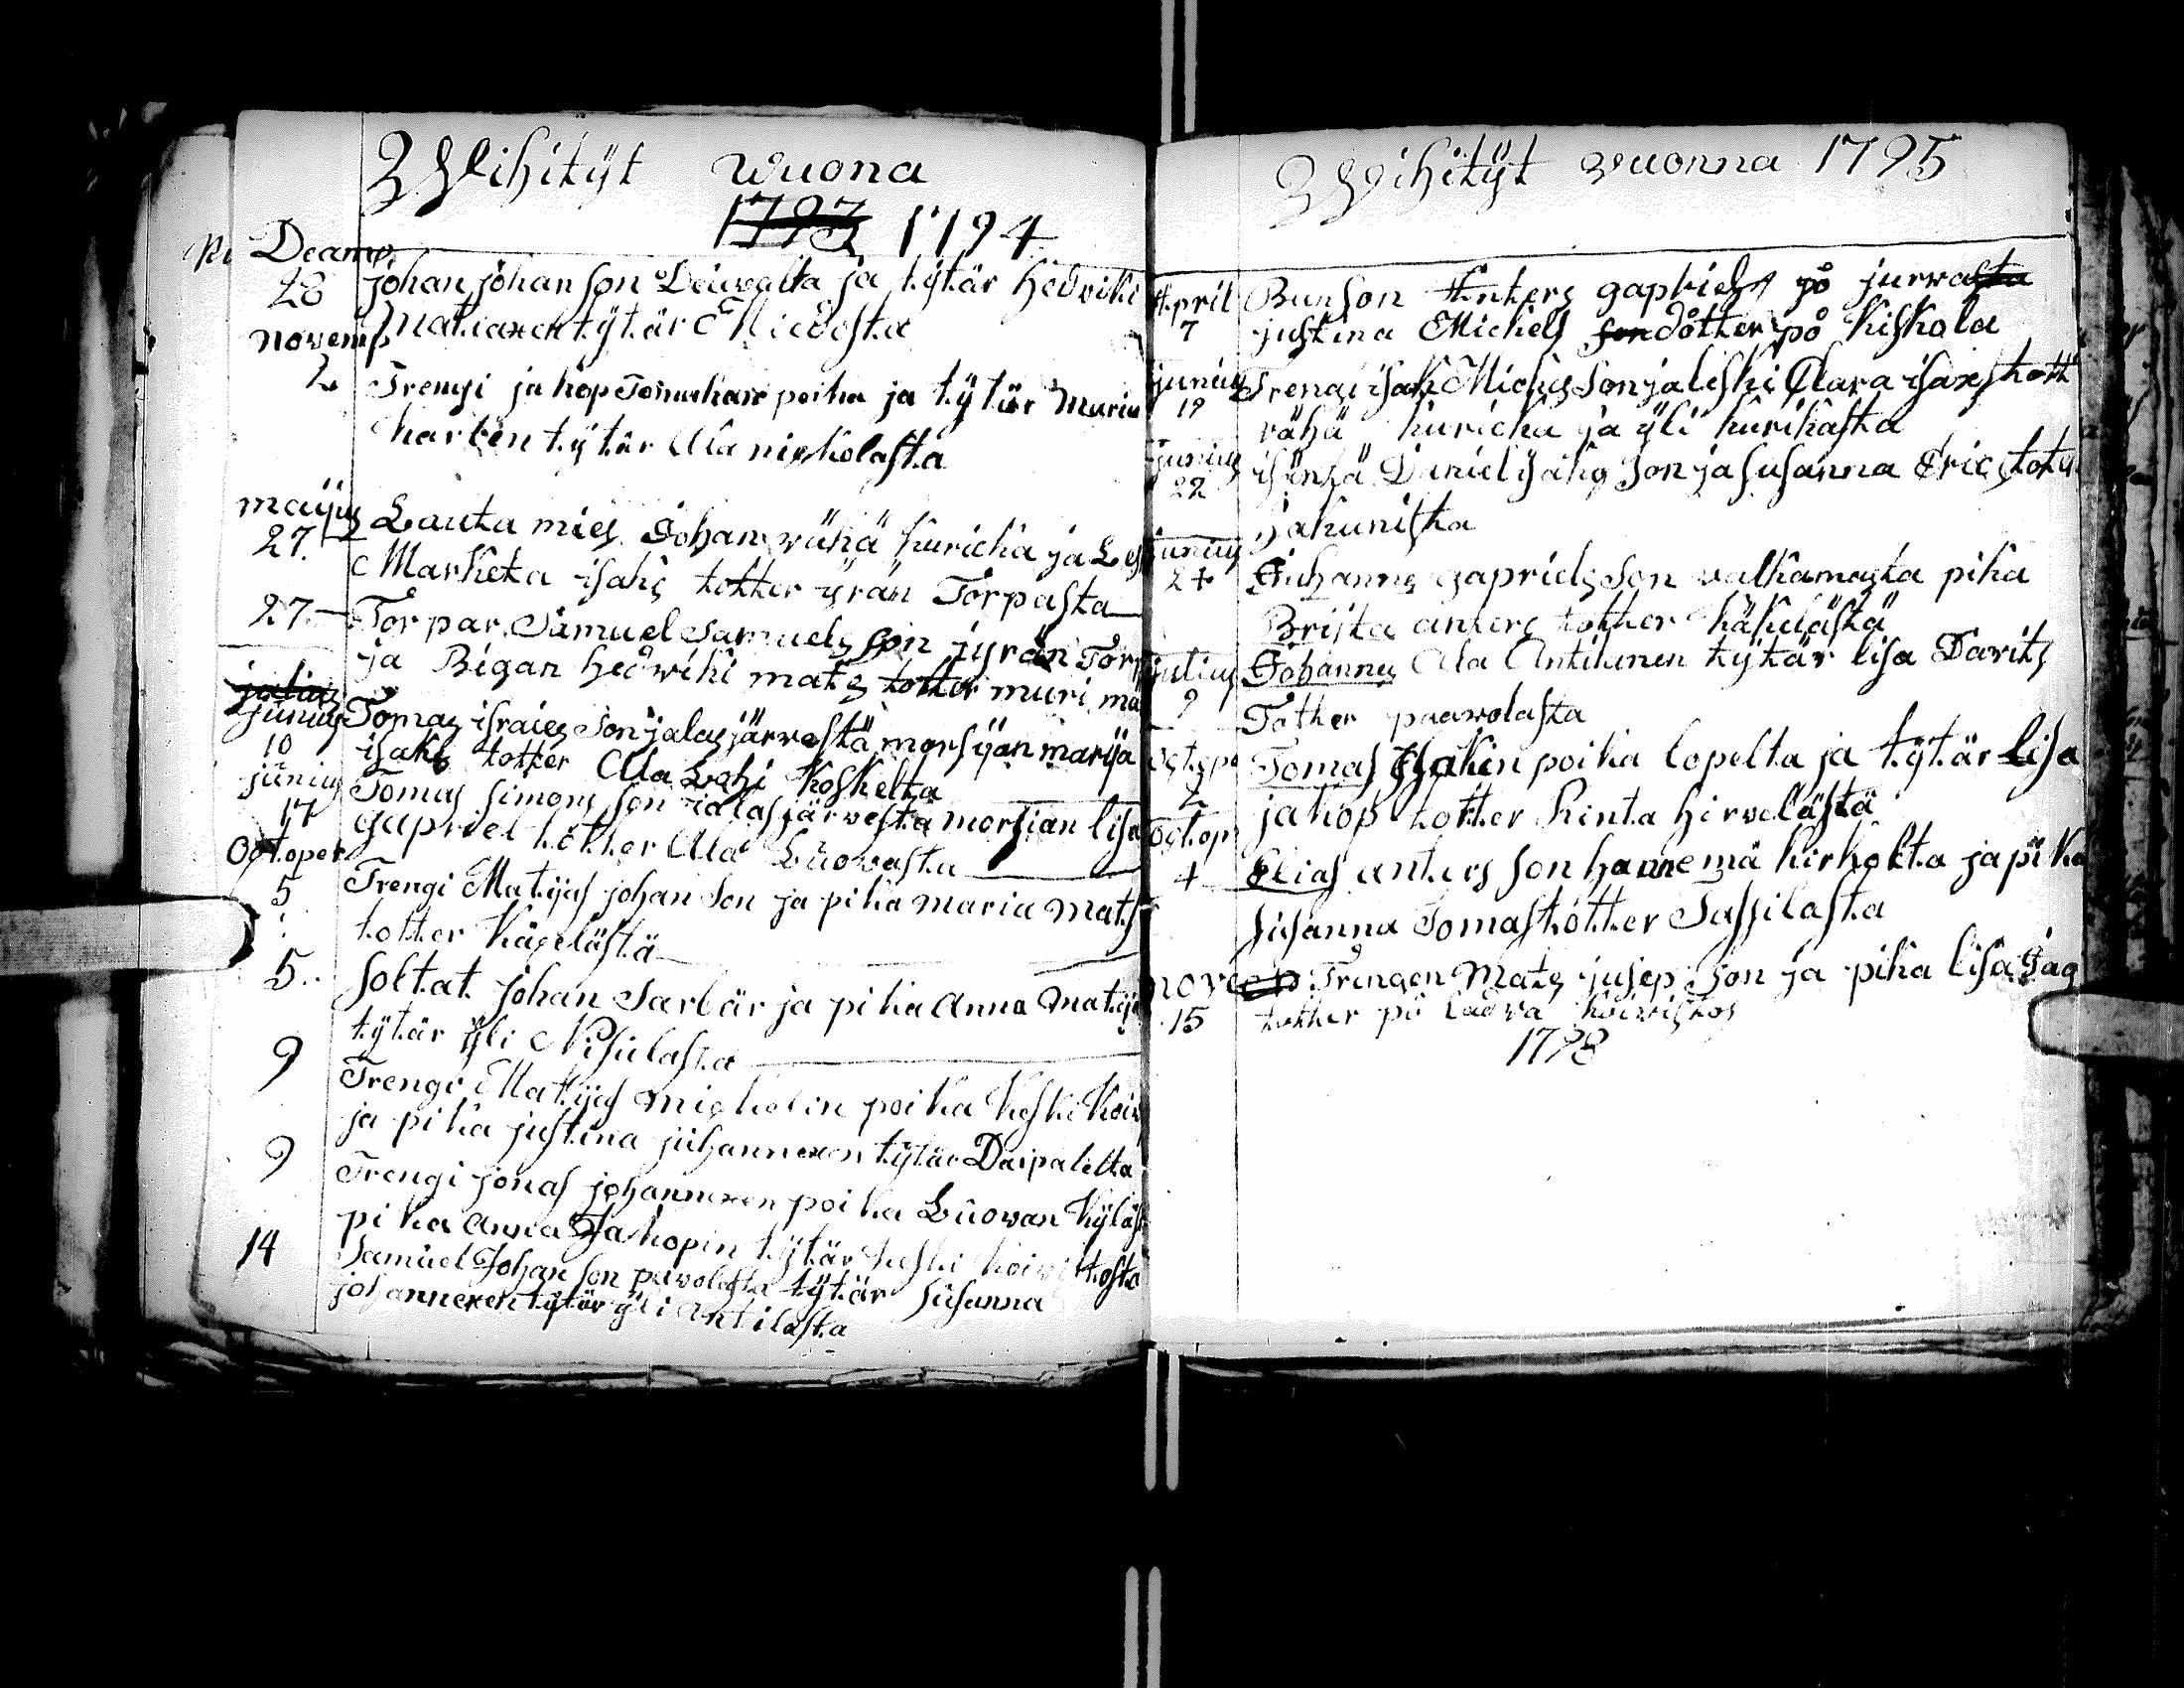 Wihitÿt wuona
1793 1794
Decamp
28 johan johan son Leiwalta ja tÿtär hedviki
Matiaxen tÿtär Niedosta
novemp
2 Trengi jakop Tomuhan poika ja tÿtär Maria
karlen tÿtär Ala niskolasta
maijus
27. Lauta mies Johan wähä kuricka ja Les
Marketa isaks totter jÿrän Torpasta
27 Torpar Samuel Samuels son jyrän Torp
ja Bigan hedwiki mats totter muri mä
julius
junius Tomas israels son jalasjärwestä morsÿan marija
10 isaks totter Ala Lohi koskelta
junius Tomas simons son ialasjärwesta morsian lisa
17 gapriel totter Ala Luowasta
Octoper
5 Trengi Matijas johan son ja pika maria mats
totter käkelästä
5. soltat johan Sarbär ja pika Anna matijas
tÿtär ÿli Nisulasta
9 Trengi Matijas mickelin poika keski koiw
ja pika justina juhannexen tÿtär Daipalelta
9 Trengi jonas johannexen poika Luowan kÿläst
pika Anna Jakopin tÿtär keski koiwistosta
14 Samuel Johan son pawolasta tÿtär susanna
johannexen tytär ÿli antilasta
Wihitÿt wuonna 1795
April Bunson Anters gapriels på jurwasta
7 justina Michels son dotter på kiskola
junius Trengi isak Michis son jaleski Clara isaxs tott
19 wähä kuricka ja ÿli kurikasta
junius isäntä Daniel isaks son ja susanna Erics toter
22 jakunista
junius
24 Juhannes gapriels son walkamasta pika
Brista anters totter käkelästä
julius Johannes Ala Antilanen tÿtär lisa Davits
9 Totter paawolasta
Octope Tomas Isakin poika lopelta ja tÿtär lisa
2 jakop totter Rinta hirwelästä
Octop
4 Elias anters son hannemä kirkolta ja pika
susanna Tomas totter Sassilasta
novem Trengen Mats jusep son ja pika lisa Jag
15 totter på ladwa koiwistos
1798